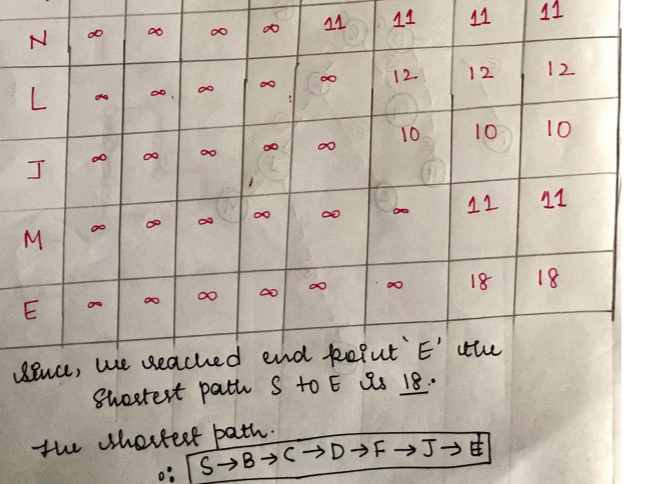 N ∞ ∞ ∞ ∞ 11 11 11 11
L ∞ ∞ ∞ ∞ ∞ 12 12 12
J ∞ ∞ ∞ ∞ ∞ 10 10 10
M ∞ ∞ ∞ ∞ ∞ ∞ 11 11
E ∞ ∞ ∞ ∞ ∞ ∞ 18 18
Since, we reached end point 'E' the
Shortest path S to E is 18.
The shortest path.
S→B→C→D→F→J→E